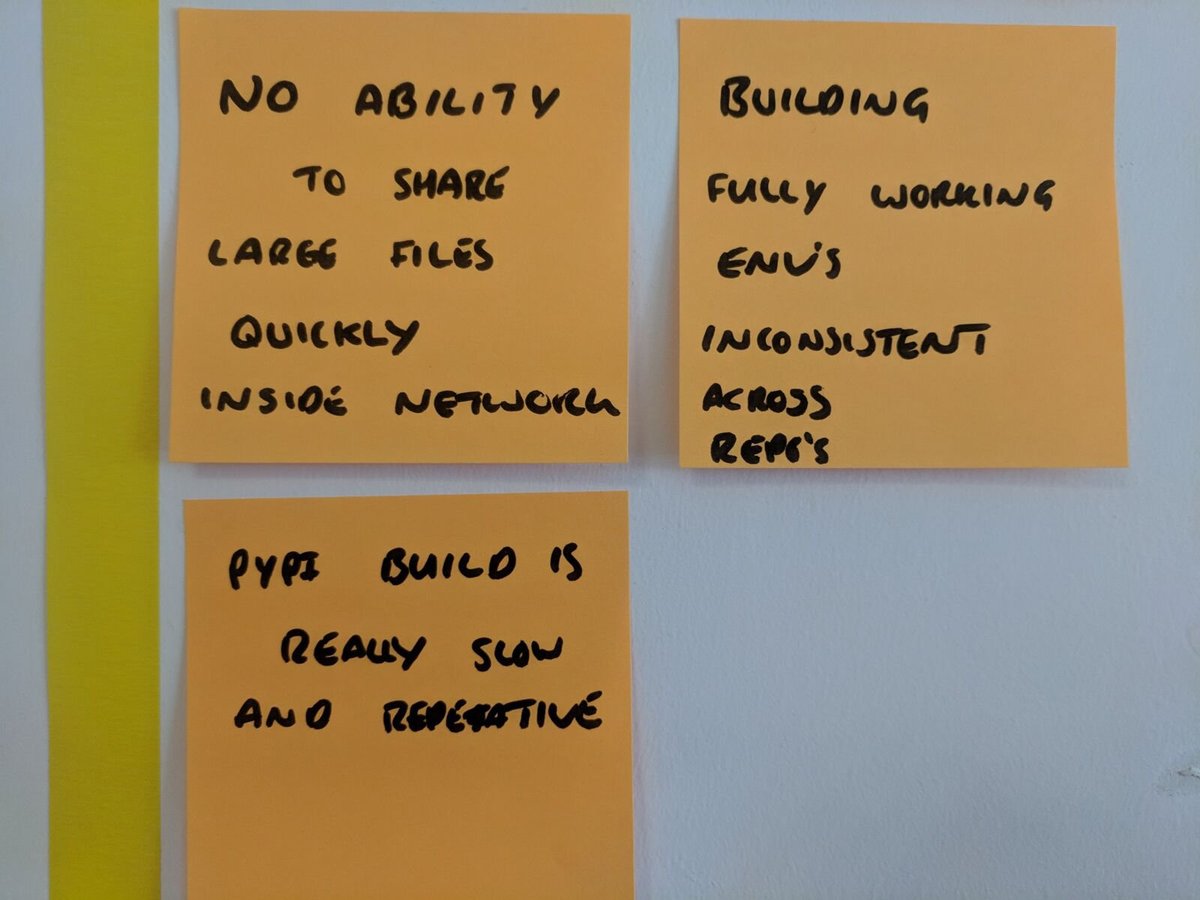 NO ABILITY
TO SHARE
LARGE FILES
QUICKLY
INSIDE NETWORK
BUILDING
FULLY WORKING
ENV'S
INCONSISTENT
ACROSS
REPO'S
PYPI BUILD IS
REALLY SLOW
AND REPETATIVE